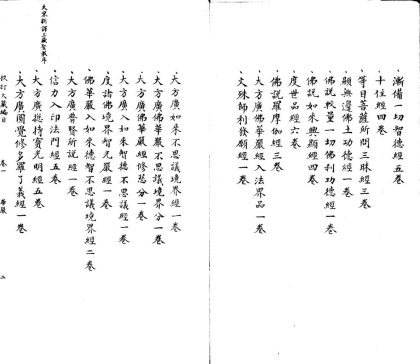 漸備一切智德經五卷
十住經四卷
等目菩薩所問三昧經三卷
顯無邊佛土功德經一卷
佛說較量一切佛刹功德經一卷
佛說如來興顯經四卷
度世品經六卷
佛說羅摩伽經三卷
大方廣佛華嚴經入法界品一卷
文殊師利發願經一卷
大方廣如來不思議境界經一卷
大方廣佛華嚴不思議境界分一卷
大方廣佛華嚴經修慈分一卷
大方廣入如來智德不思議經一卷
度諸佛境界智光嚴經一卷
佛華嚴入如來德智不思議境界經二卷
大方廣普賢所說經一卷
信力入印法門經五卷
大方廣摠持寶光明經五卷
大方廣圓覺修多羅了義經一卷
大宋新譯三藏聖教序
校訂大藏編目　卷一　華嚴　二